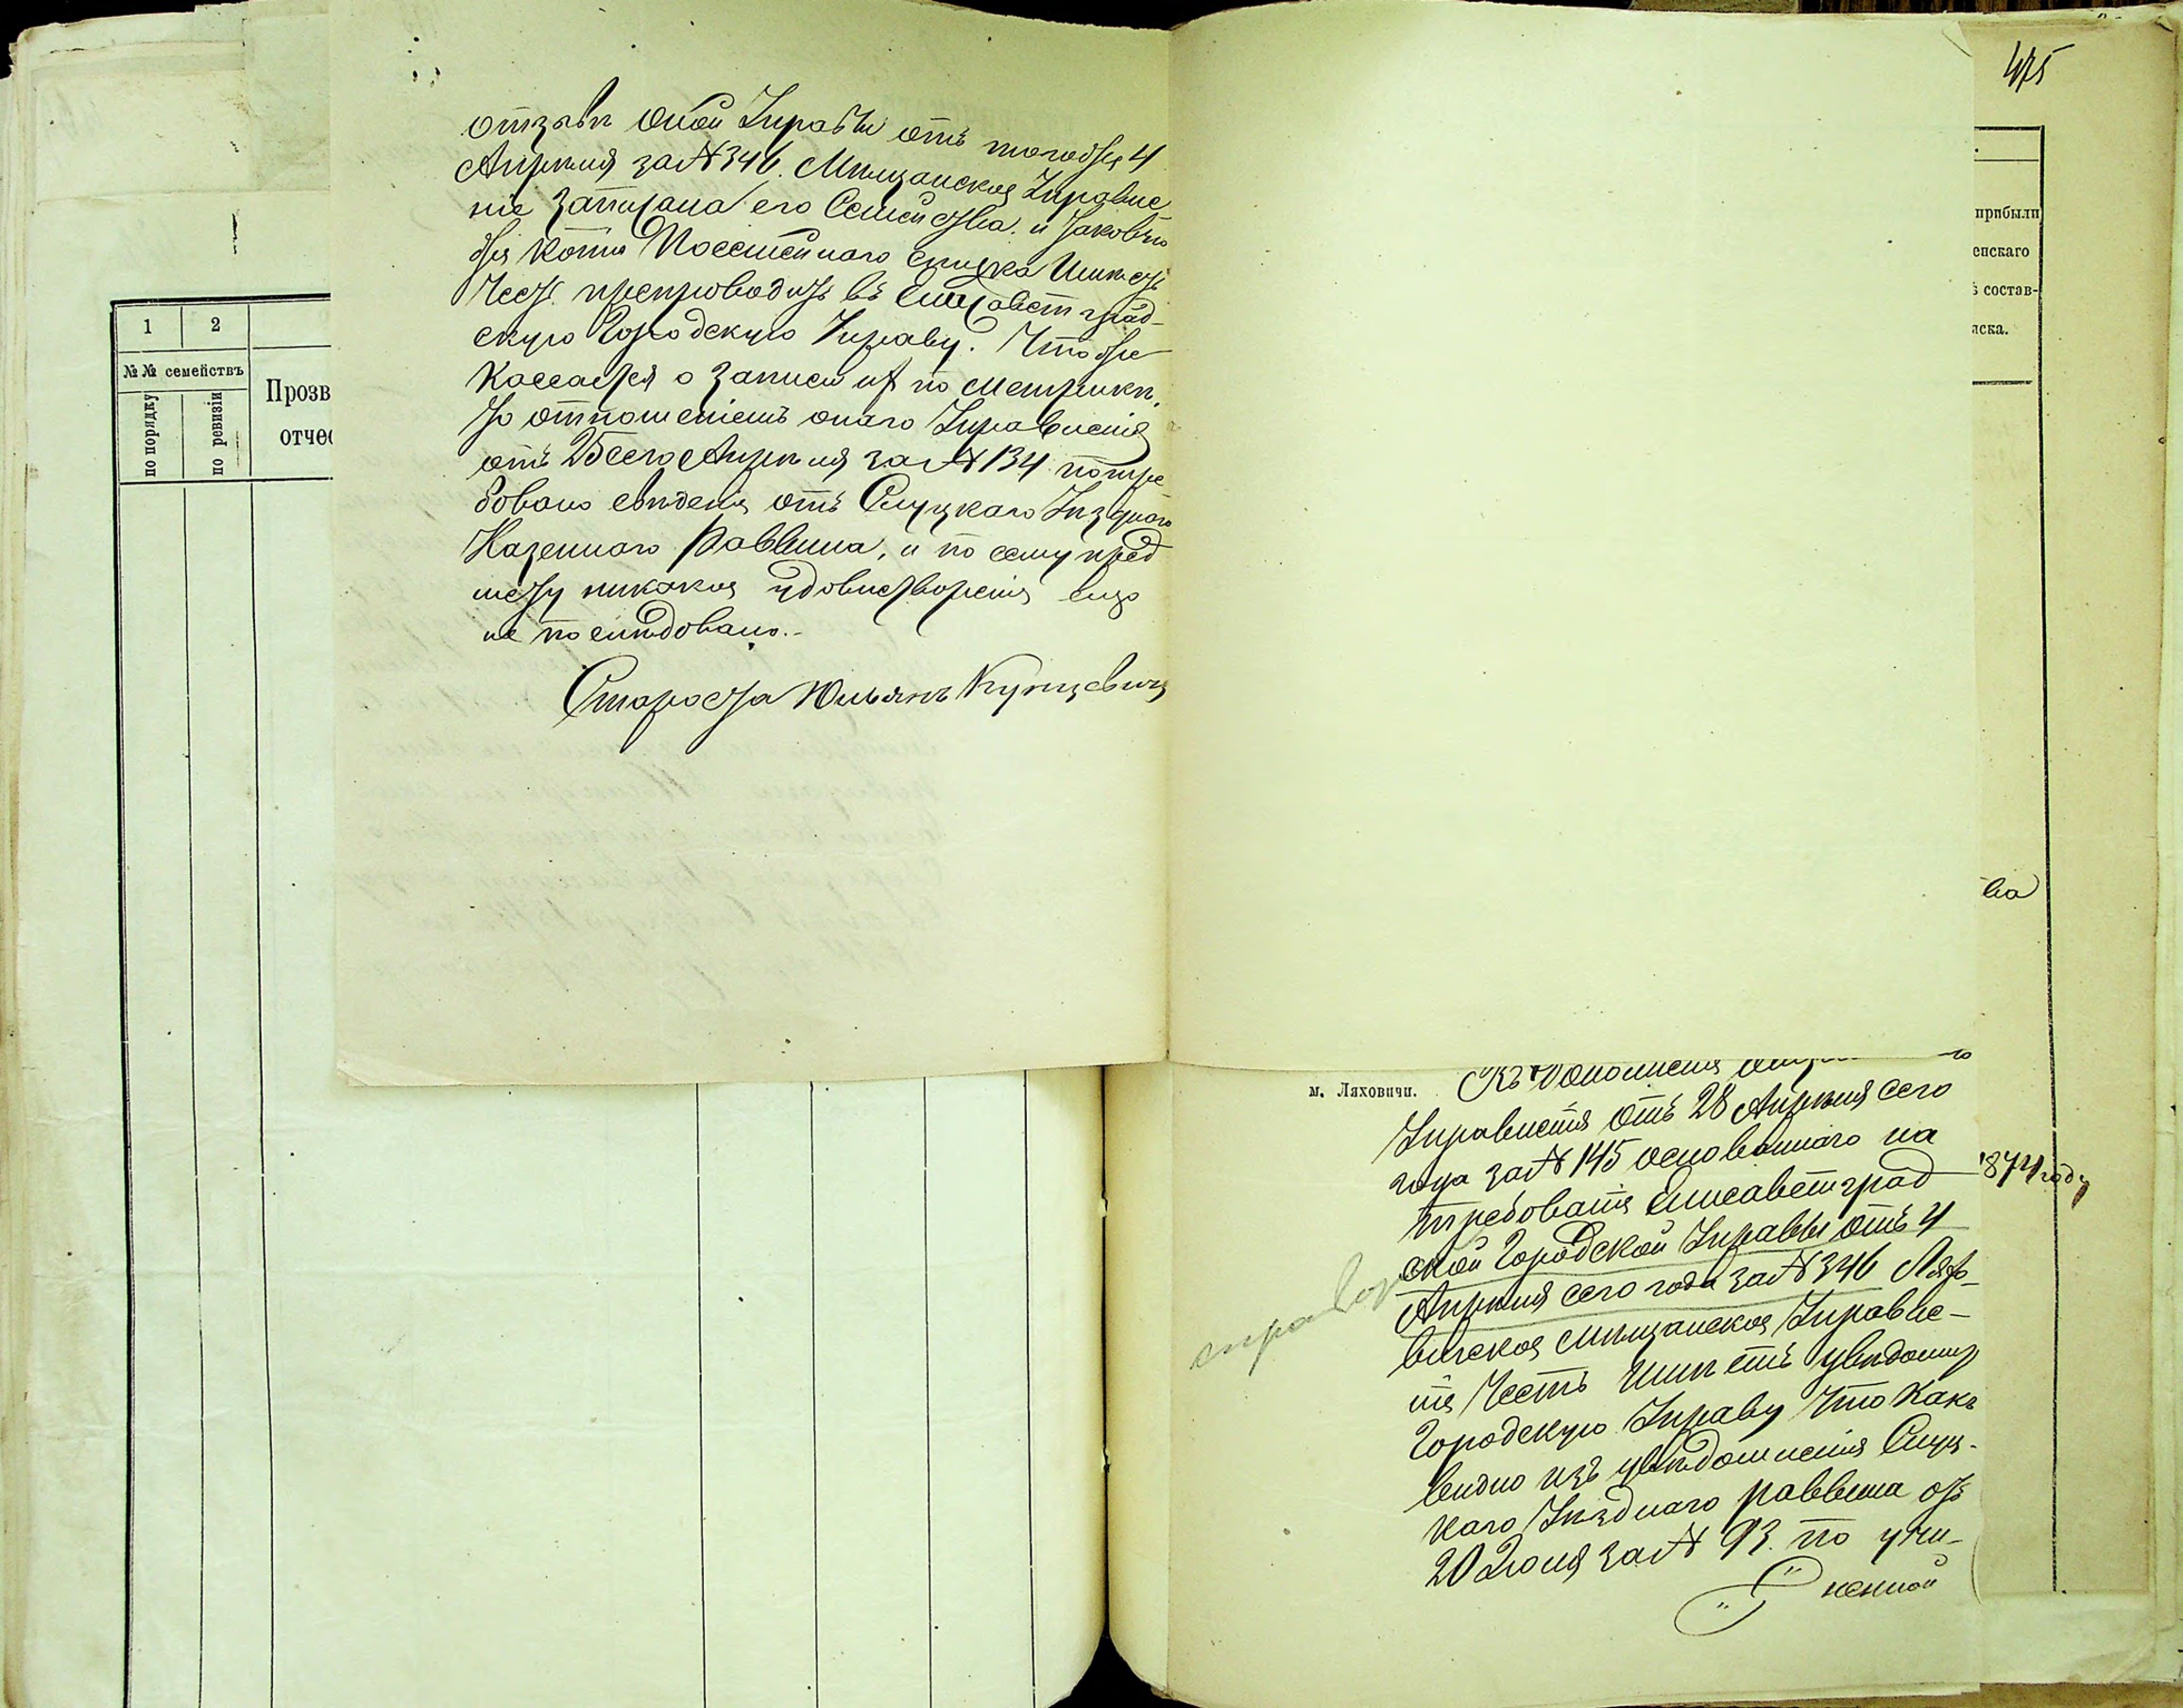 отзывъ оной Управы отъ тогоже 4
Апрѣля за № 346. Мѣщанское Управле
ніе записана его Семейства. и таковую
же копію Посемейнаго списка Имѣетъ
Честь препроводить въ Елисаветград-
скую Городскую Управу. Что же
Кассается о записи их по метрикѣ,
то отношеніемъ онаго Управленія
отъ 25 сего Апрѣля за № 134 потре
бовано свѣденія отъ Слуцкаго Уѣзднаго
Казеннаго Раввина, и по сему пред
мету никакое удовлетвореніе еще
не послѣдовало.
Староста Юльянъ Кунцевичъ
475
1 2
№№ семействъ
по порядку
по ревизіи
Прозв
отчес
прибыли
енскаго
ъ состав-
иска.
ва
1874 году
м. Ляховичи.
Къ дополненію
Управленія отъ 28 Апрѣля сего
года за № 145 основаннаго на
требованія Елисаветград
ской Городской Управы отъ 4
Апрѣля сего года за № 346 Ляхо-
вичское Мѣщанское Управле-
ніе Честь Имѣетъ увѣдомить
Городскую Управу что какъ
видно изъ увѣдомленія Слуц-
каго Уѣзднаго раввина отъ
20 Іюня за № 93. по учи-
ненной